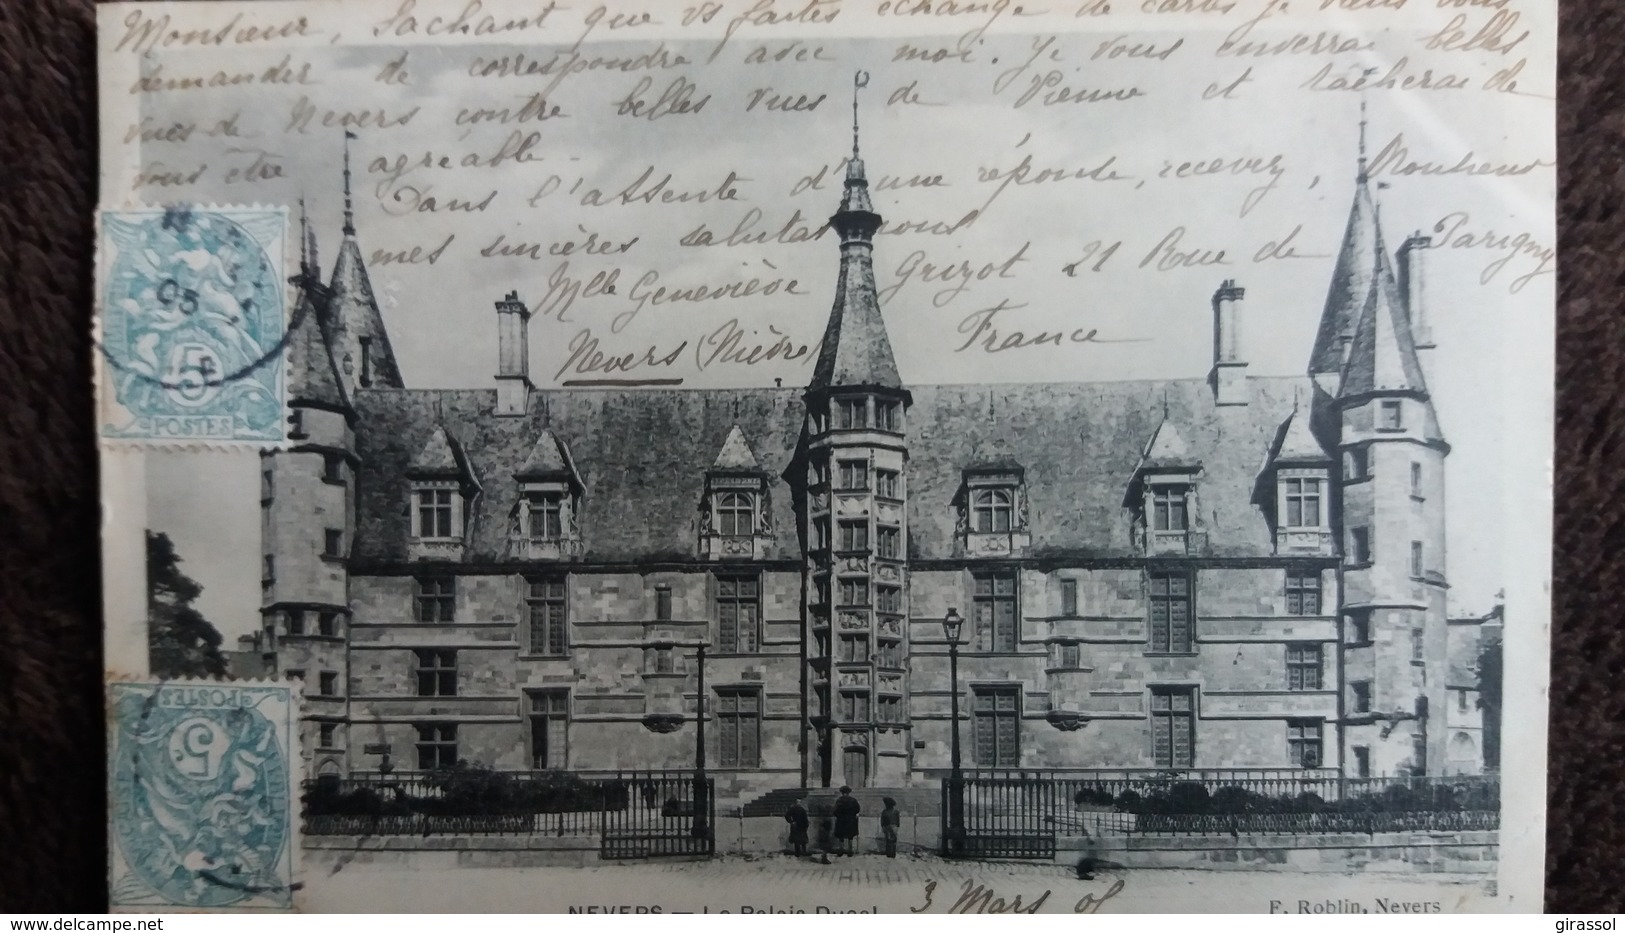 Monsieur, Sachant que vs faites échange de cartes je viens vous
demander de correspondre avec moi. Je vous enverrai belles
vues de Nevers contre belles vues de Vienne et tâcherai de
vous être agréable.
Dans l'attente d'une réponse, recevez, Monsieur
mes sincères salutations
Mlle Geneviève Grizot 21 Rue de Parigny
Nevers (Nièvre) France
05
5
POSTES
POSTES
5
NEVERS — Le Palais Ducal
3 Mars 05
F. Roblin, Nevers
www.delcampe.net
girassol